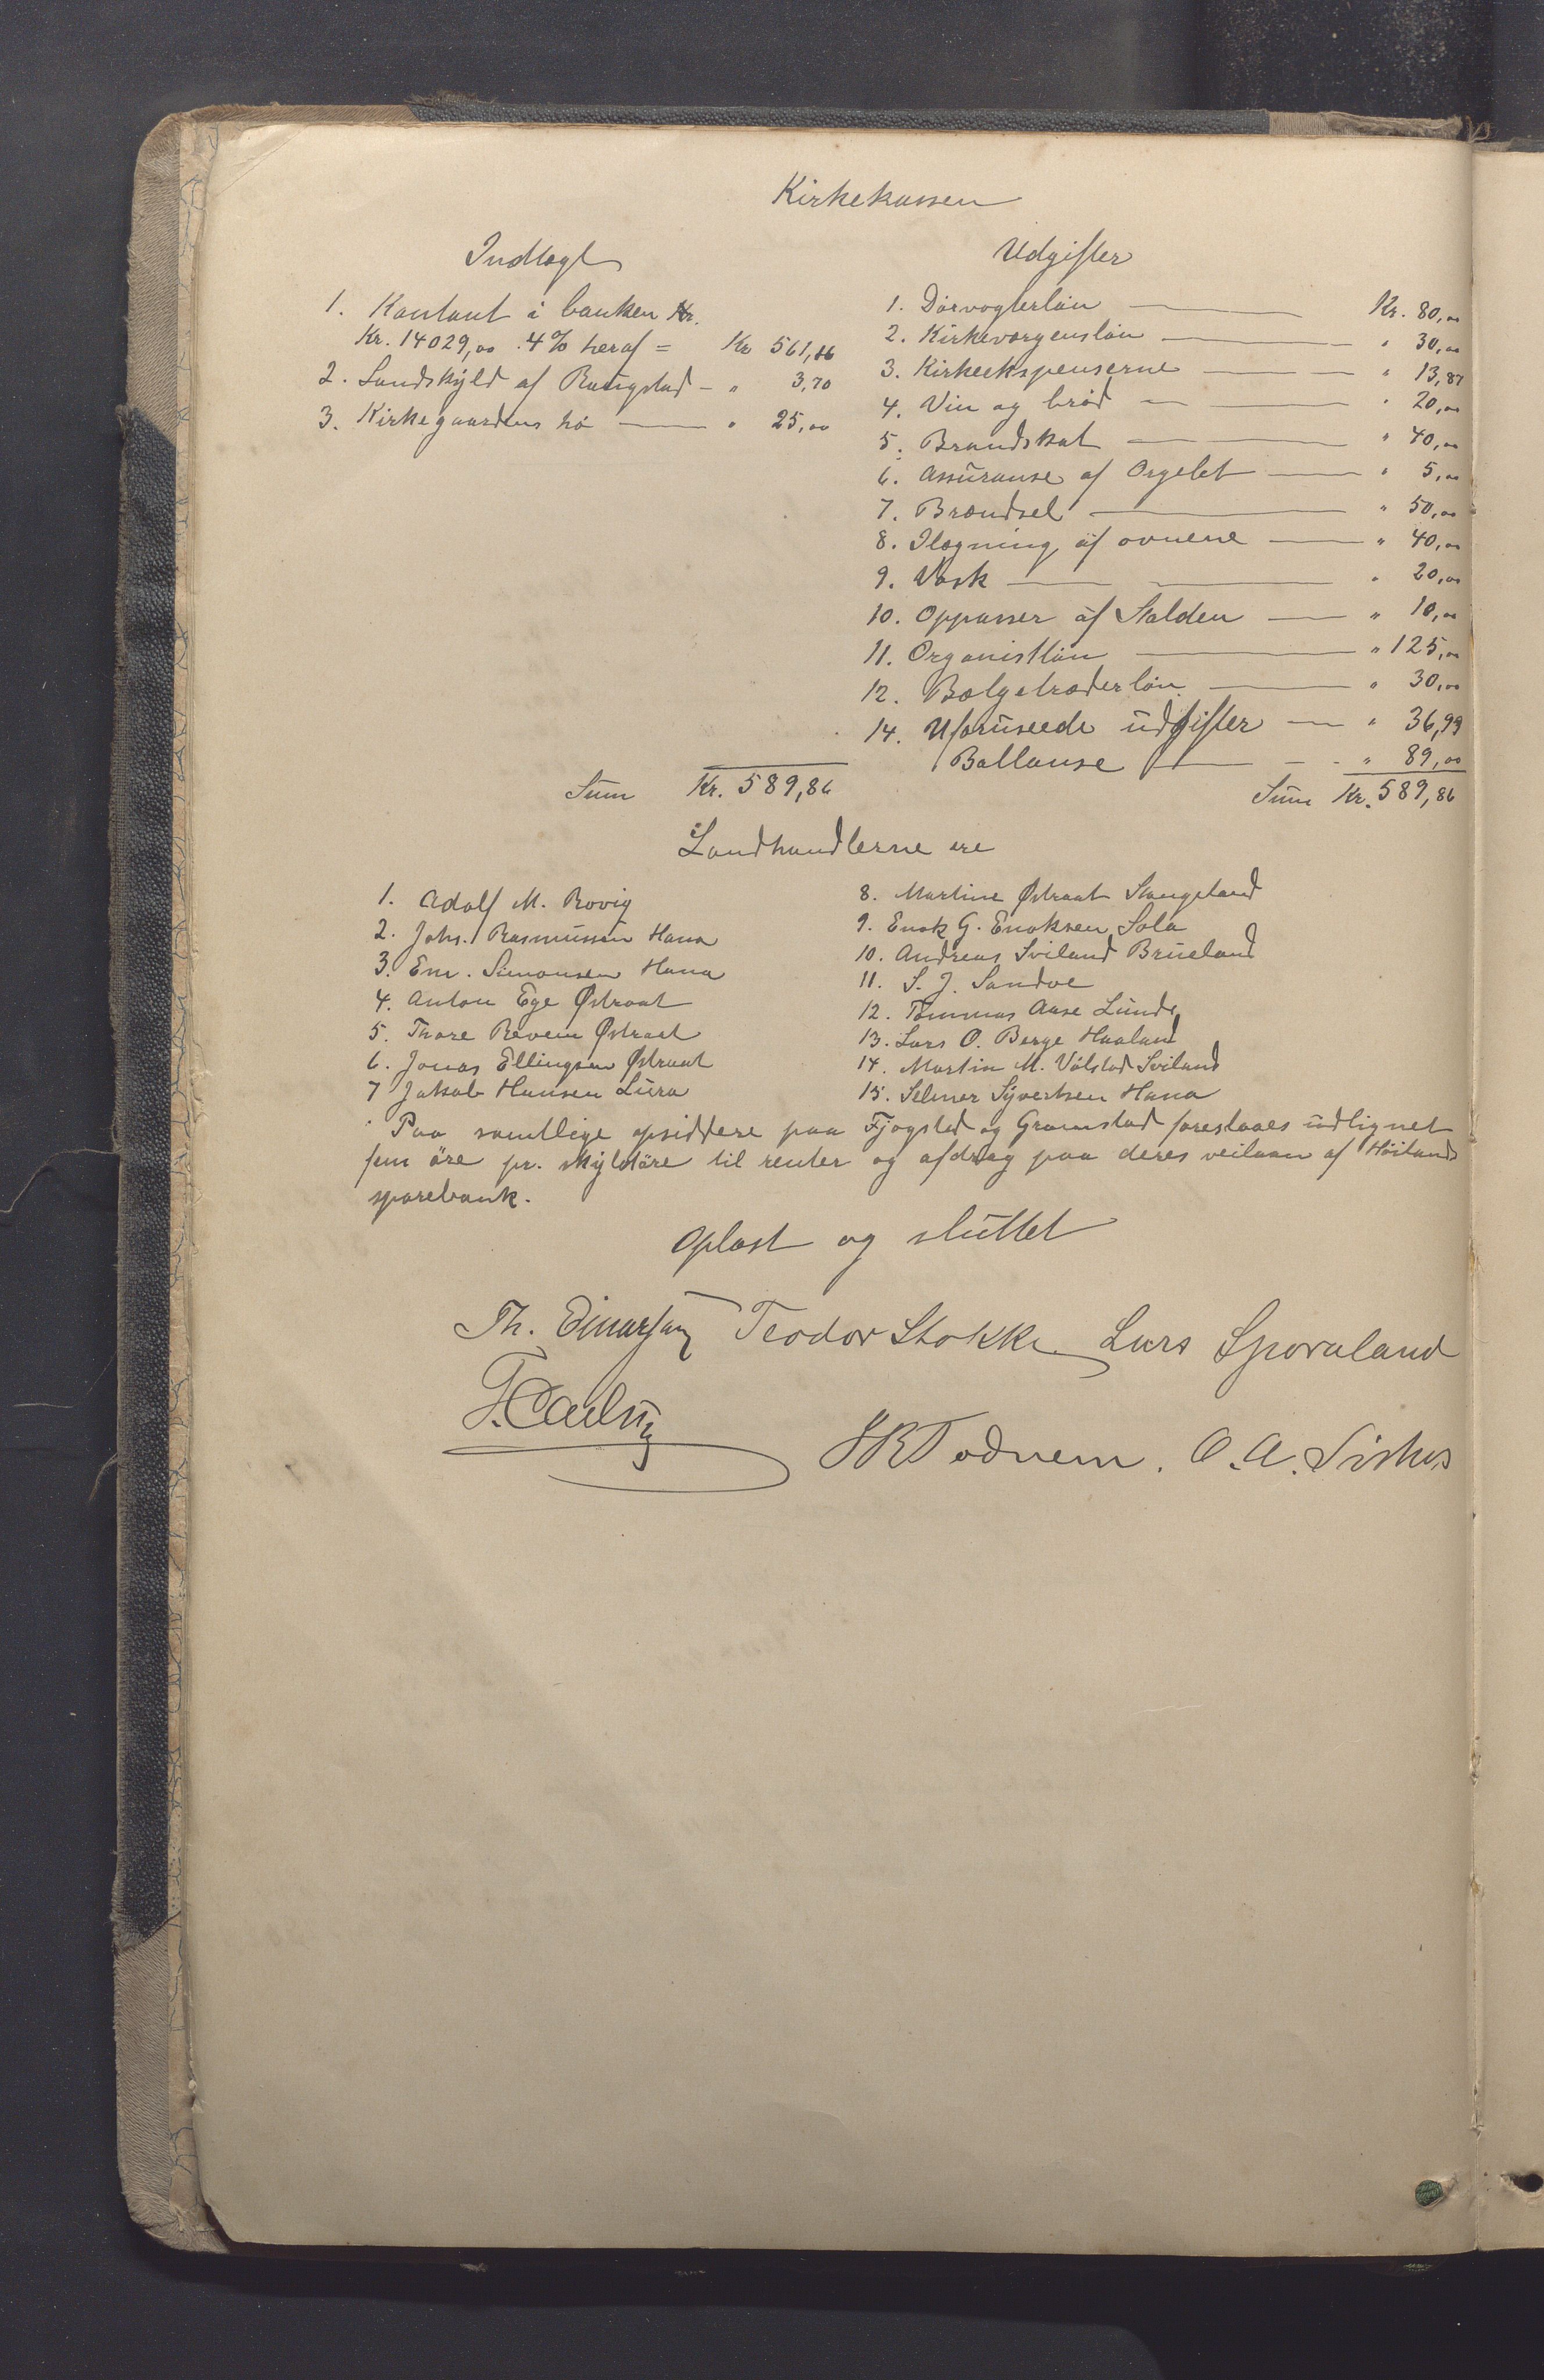 Kirkekassen
Indtægt
1. Kontant i banken Kr.
Kr. 14029,00 . 4% heraf = Kr 561,16
2. Landskyld af Raugstad - " 3,70
3. Kirkegaardens hö — " 25,00
Sum Kr. 589,86
Udgifter
1. Dörvogterlön — Kr. 80,00
2. Kirkeværgenslön — " 30,00
3. Kirkeekspenserne — " 13,87
4. Vin og bröd — " 20,00
5. Brandskat — " 40,00
6. Assuranse af Orgelet — " 5,00
7. Brændsel — " 50,00
8. Ilægning af ovnene — " 40,00
9. Vask — " 20,00
10. Oppasser af Stalden — " 10,00
11. Organistlön — " 125,00
12. Bælgetræderlön — " 30,00
14. Uforuseede udgifter — " 36,99
Ballanse — " 89,00
Sum Kr. 589,86
Landhandlerne ere
1. Adolf M. Rovig
2. Johs. Rasmussen Hana
3. Em. Simonsen Hana
4. Anton Ege Østraat
5. Thore Revem Østraat
6. Jonas Ellingsen Østraat
7 Jakob Hansen Lura
8. Martine Østraat Stangeland
9. Enok G. Enoksen Sola
10. Andreas Sviland Brueland
11. S. J. Sandve
12. Tommas Aase Lunde
13. Lars O. Berge Haaland
14. Martin M. Válstad Sviland
15. Selmer Syvertsen Hana
Paa samtlige opsiddere paa Fjogstad og Gramstad foreslaaes udlignet
fem öre pr. skyldöre til renter og afdrag paa deres veilaan af Höilands
sparebank.
Oplæst og sluttet
Th. Einarsen Teodor Stokke Lars Sporaland
T. Carlsen
SRTodnem. O. A. Sirkes